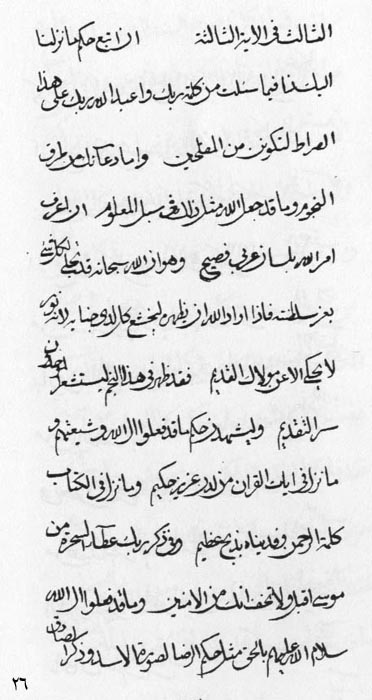 الثالث في الآية الثالثة ان اتبع حكم ما نزلنا
اليك فيما سئلت من كلمة ربك واعبد الله ربك على هذا
الصراط لتكونن من المفلحين واما دعائك من طرق
النجوم وما قد جعل الله مثل ذلك في سبل المعلوم ان اعرف
امر الله بلسان عربي فصيح وهو ان الله سبحانه قد تجلى لكل شيء
بعز سلطنته فاذا اراد الله ان يظهر لخشع كل لدى ضيائه لانه نور
لا يحكي الا عن مولاك القديم فقد ظهر في هذا النجم ليستشعرن احد من
سر التقديم وليشهدن حكم ما قد فعلوا ال الله وشيعتهم و
ما نزل في ايات القران من لدن عزيز حكيم وما نزل في الكتاب
كلمة الرحمن وفديناه بذبح عظيم وفي ذكر ربك عطاء السحرة من
موسى اقبل ولا تخف انك من الامنين وما قد فعلوا ال الله
سلام الله عليهم بالحق مثل حكم الرضا لصورة الاسد وذكر الصادق
٢٦